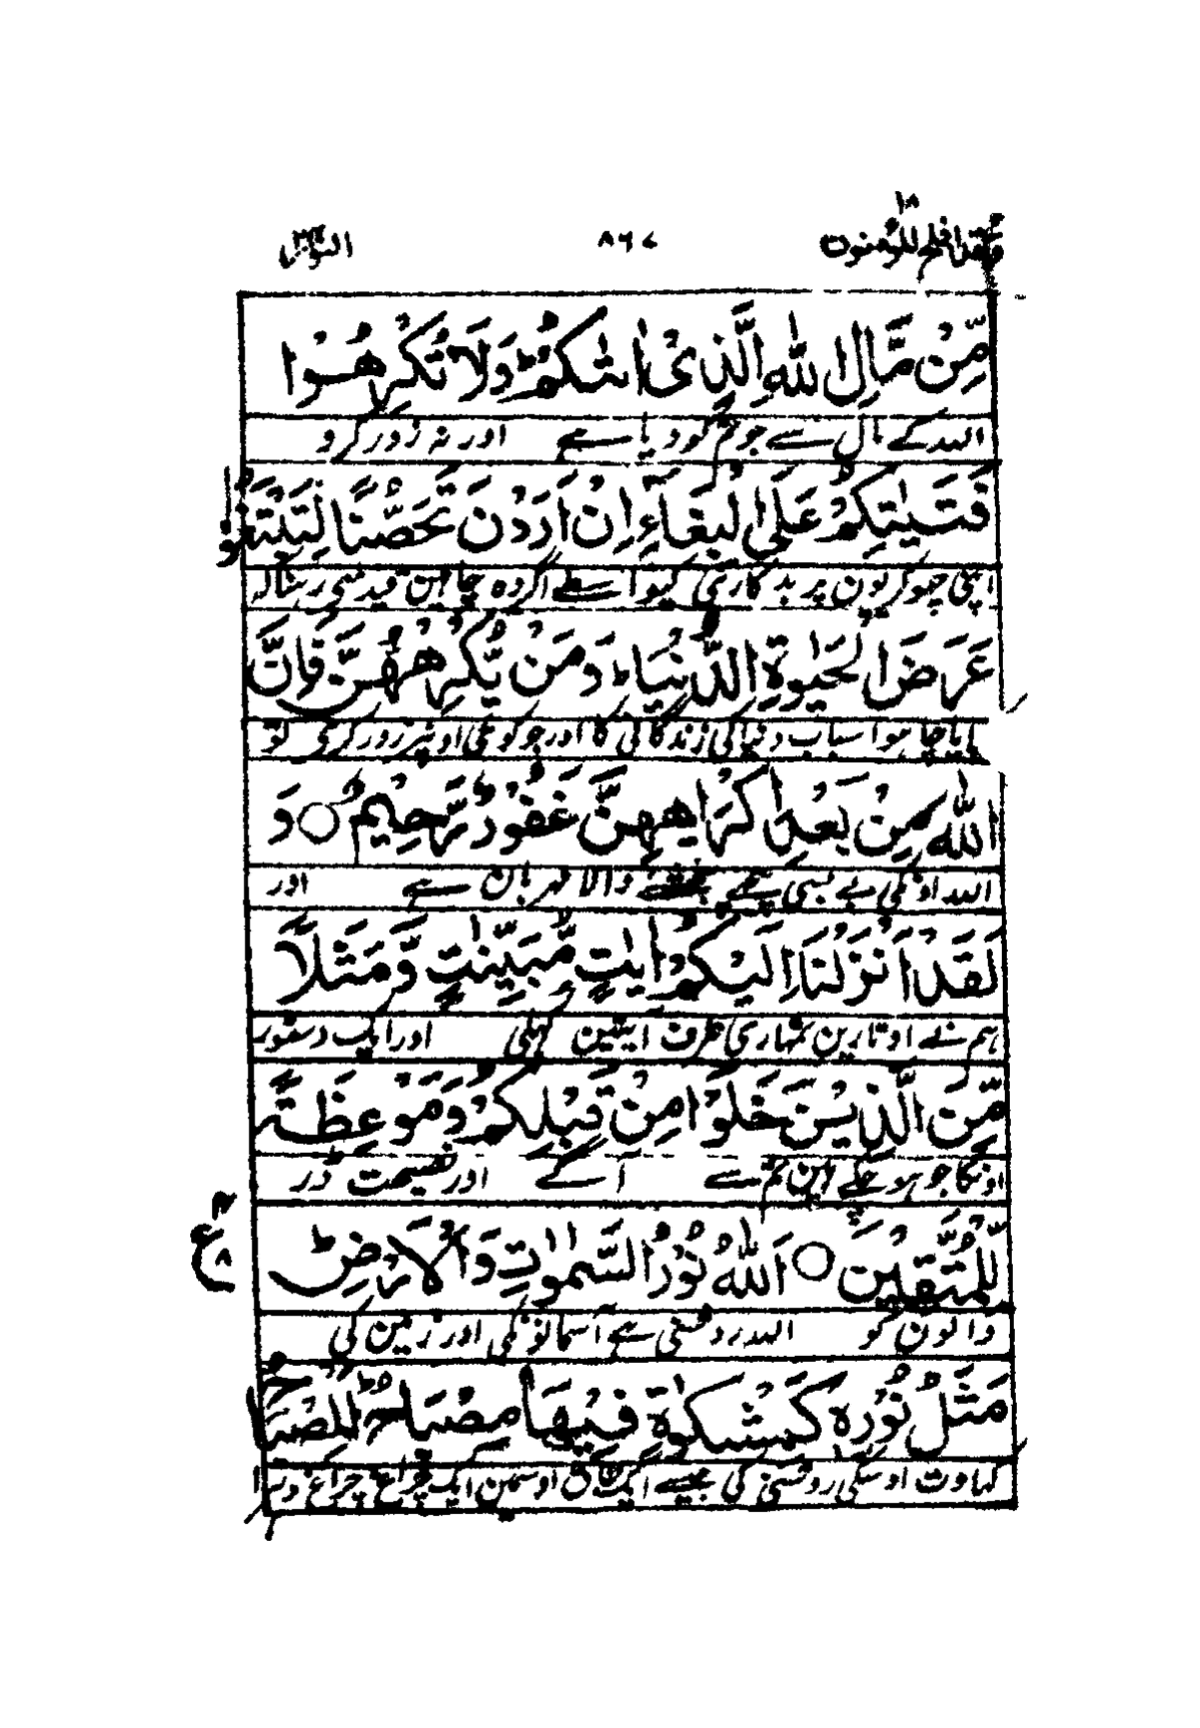 ١٨
قد افلح المؤمنون ٨٦٧ النور ٢٤
مِّنْ مَّالِ اللّٰهِ الَّذِیْۤ اٰتٰىكُمْ ؕ وَلَا تُكْرِهُوْا
اللہ کے مال سے جو تم کو دیا ہے اور نہ زور کرو
فَتَیٰتِكُمْ عَلَی الْبِغَآءِ اِنْ اَرَدْنَ تَحَصُّنًا لِّتَبْتَغُوْا
اپنی چھوکریون پر بدکاری کیواسطے اگر وہ چاہین قید سی رہنا کہ
عَرَضَ الْحَیٰوةِ الدُّنْیَا ؕ وَمَنْ یُّكْرِهْهُّنَّ فَاِنَّ
کمایا چاہو اسباب دنیا کی زندگانی کا اور جو کوئی اونپر زور کری تو
اللّٰهَ مِنْۢ بَعْدِ اِكْرَاهِهِنَّ غَفُوْرٌ رَّحِیْمٌ ○ وَ
اللہ اونکی بے بسی پیچھے بخشنے والا مہربان ہے اور
لَقَدْ اَنْزَلْنَاۤ اِلَیْكُمْ اٰیٰتٍ مُّبَیِّنٰتٍ وَّمَثَلًا
ہم نے اوتارین تمہاری طرف آیتین کھلی اور ایک دستور
مِّنَ الَّذِیْنَ خَلَوْا مِنْ قَبْلِكُمْ وَمَوْعِظَةً
اونکا جو ہو چکے ہین تم سے آگے اور نصیحت ڈر
لِّلْمُتَّقِیْنَ ○ اَللّٰهُ نُوْرُ السَّمٰوٰتِ وَالْاَرْضِ ؕ
ع
والون کو اللہ روشنی ہے آسمانونکی اور زمین کی
مَثَلُ نُوْرِهٖ كَمِشْكٰوةٍ فِیْهَا مِصْبَاحٌ ؕ اَلْمِصْبَاحُ
کہاوت اوسکی روشنی کی جیسے ایک طاق اوسمین ایک چراغ چراغ دہرا